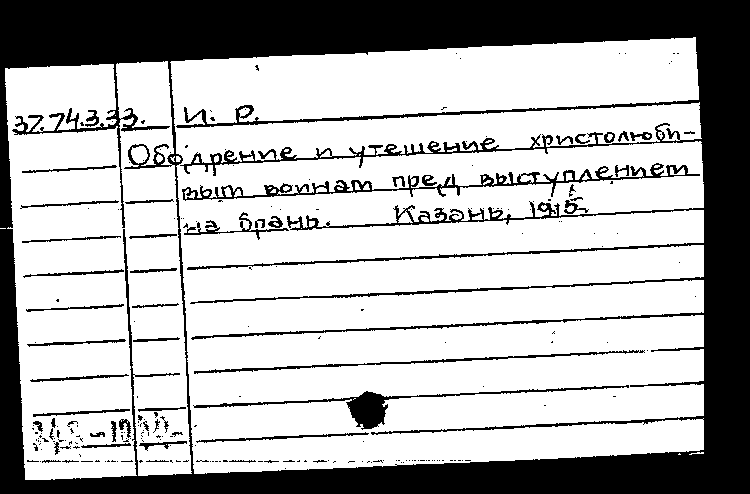 37.74.3.33. И. Р.
Ободрение и утешение христолюби-
вым воинам пред выступлением
на брань. Казань, 1915.